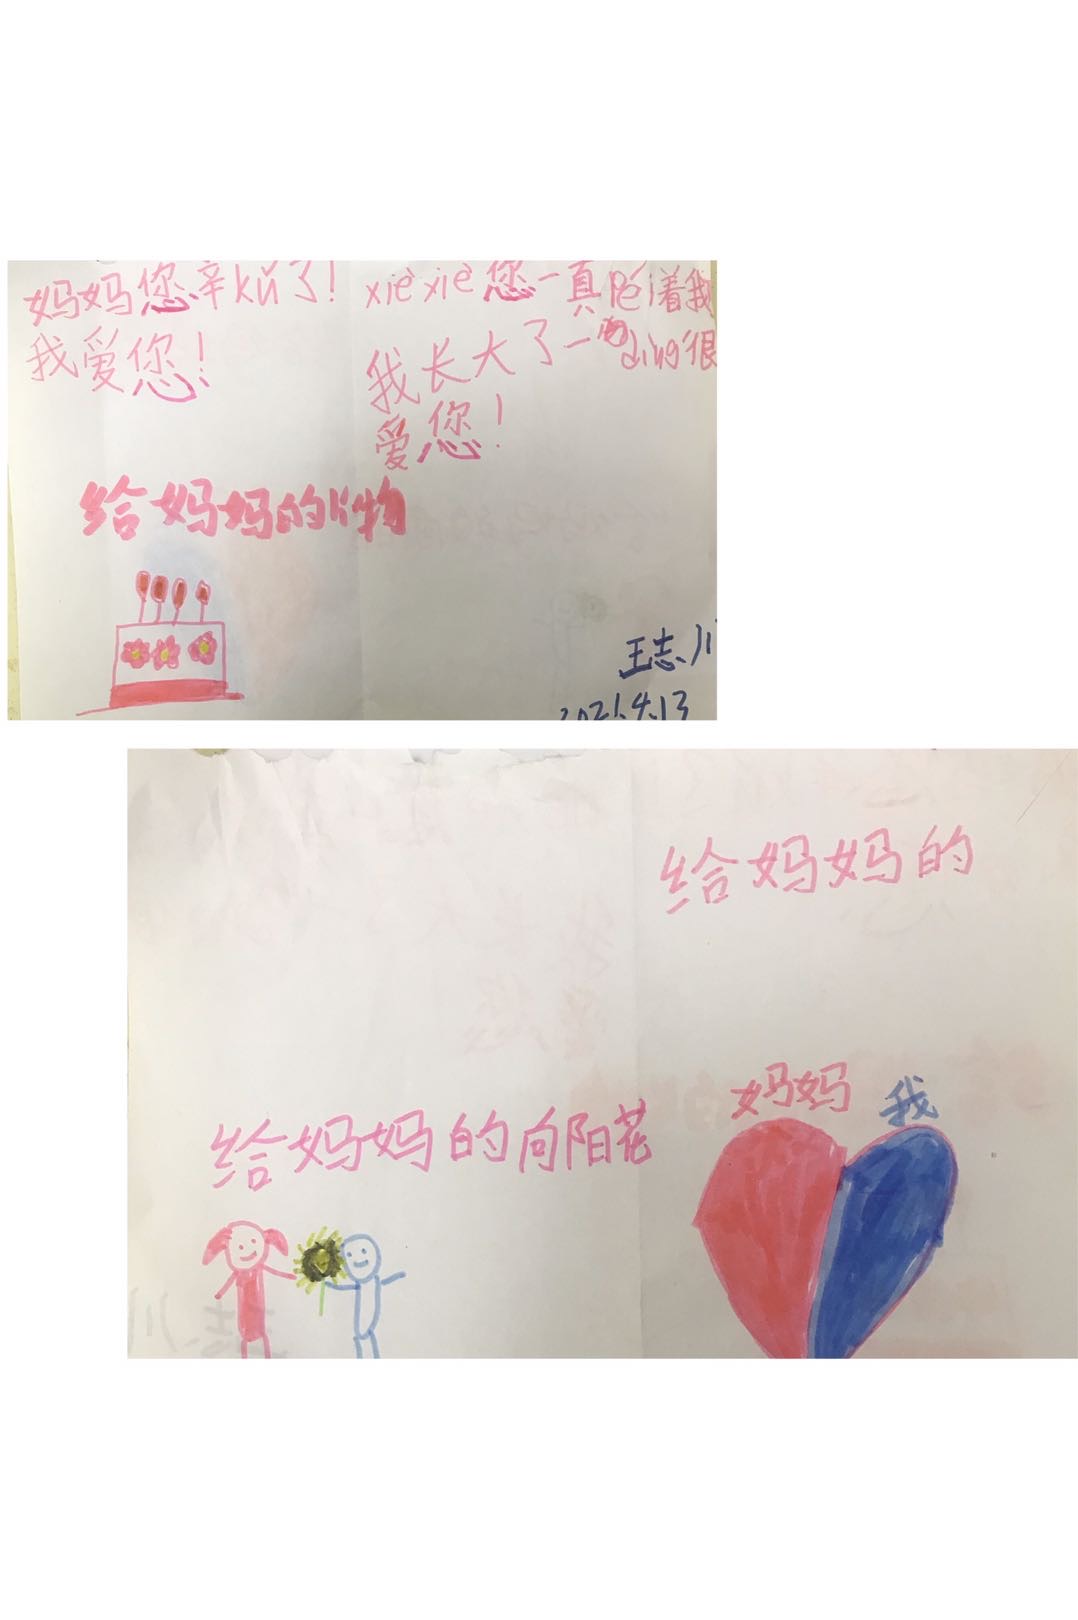 妈妈您辛kǔ了!
我爱您!
xiè xiè 您一真péi着我
我长大了一dìng很
爱您!
给妈妈的礼物
王志川
2021.4.13
给妈妈的
妈妈 我
给妈妈的向阳花